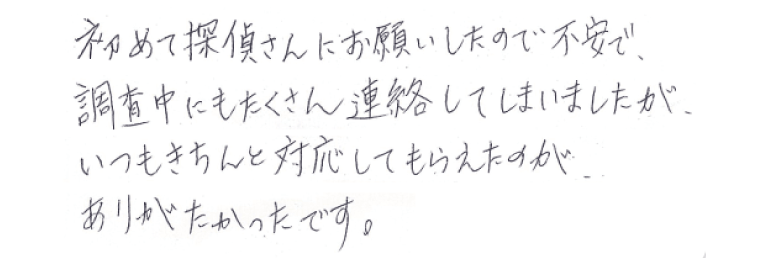 初めて探偵さんにお願いしたので不安で、
調査中にもたくさん連絡してしまいましたが、
いつもきちんと対応してもらえたのが、
ありがたかったです。